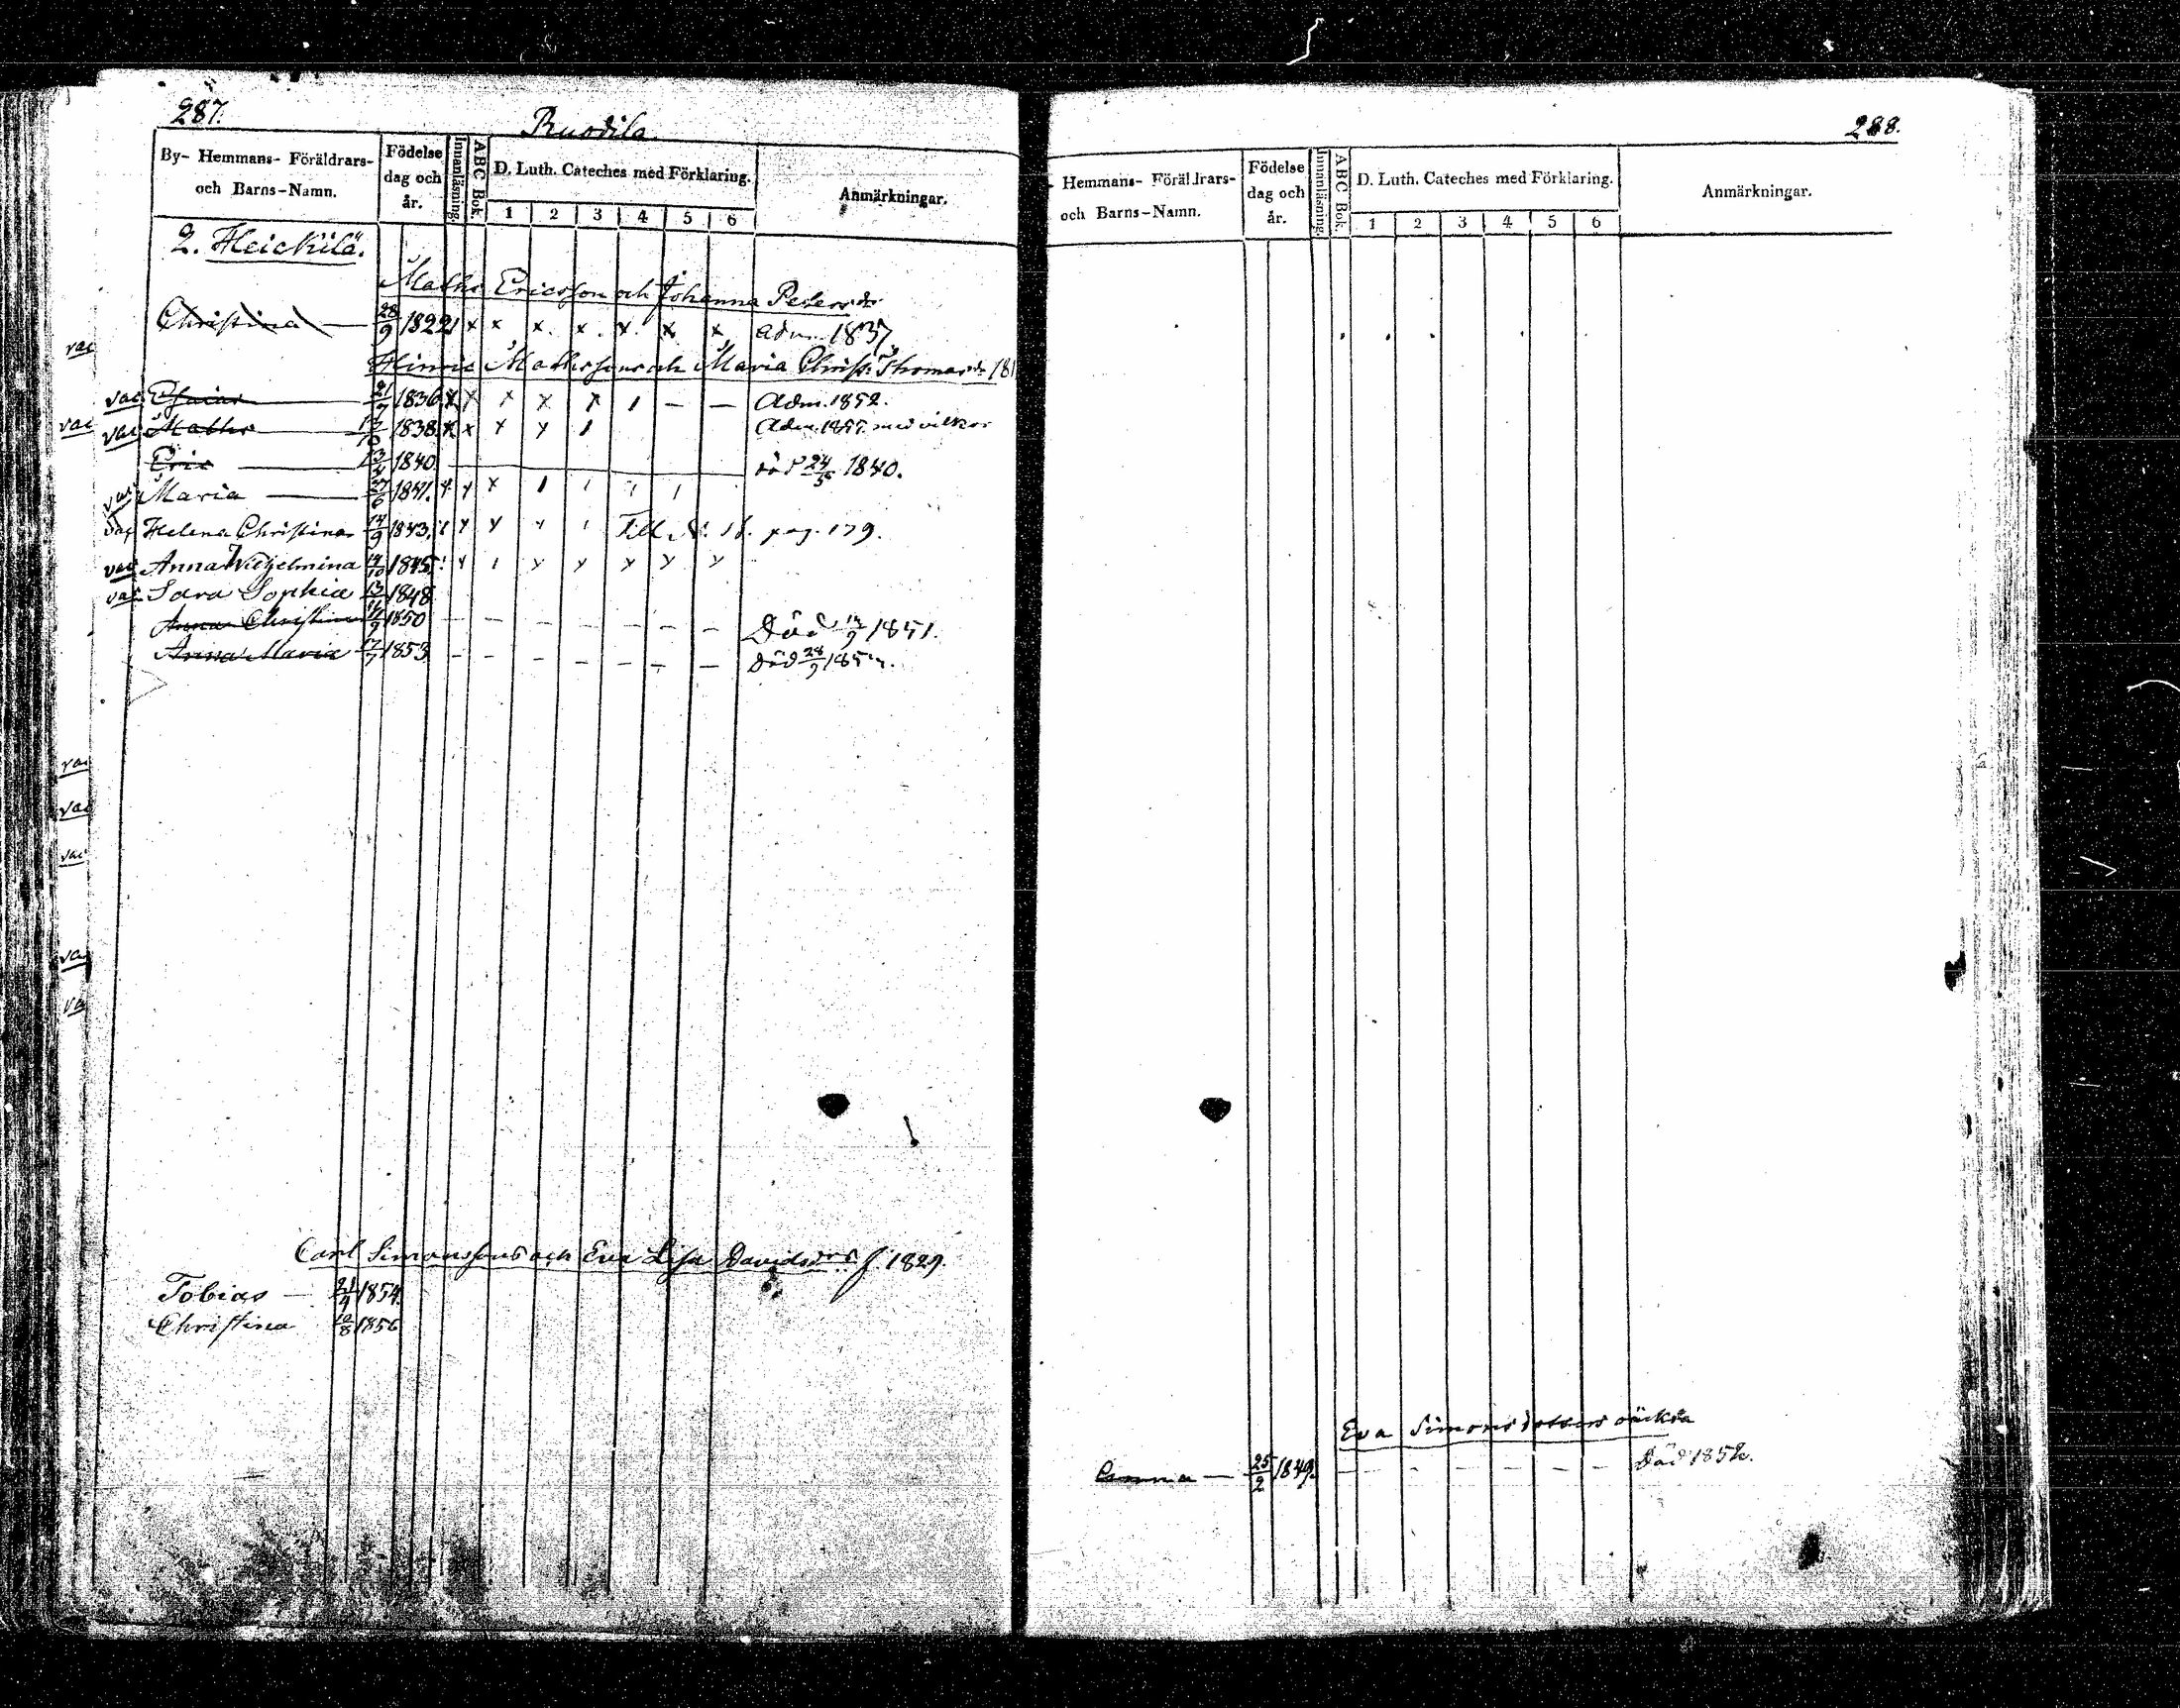 287.
Ruodila
By- Hemmans- Föräldrars- och Barns-Namn. Födelse dag och år. Innanläsning. ABC Bok. D. Luth. Cateches med Förklaring. 1 2 3 4 5 6 Anmärkningar.
2. Heickilä.
Maths Ericsson och Johanna Petersdr
Christina — 28/9 1822 x x x. x. x. x x Adm. 1837
Hinric Mathssons och Maria Christ: Thomasdr 181
vac Esaias 21/7 1836 x x x x x 1 — — Adm. 1852.
vac Maths 17/10 1838 x x x y 1 Adm. 1855 med vilkor
Eric — 13/4 1840 död 24/5 1840.
vac Maria — 27/6 1841. x y x 1 1 1 1
vac Helena Christina 14/9 1843. y y y 1 Till N. 16. pag. 179.
vac Anna Wilhelmina 14/10 1845 y 1 y y y y y
vac Sara Sophia 13/ 1848
Anna Christina 14/9 1850 — — — — — — — Död 14/9 1851.
Anna Maria 17/7 1853 — — — — — — — Död 28/9 185
vac
vac
vac
vac
vac
va
va
Carl Simonssons och Eva Lisa Davidsdrs f 1829.
Tobias — 21/4 1854.
Christina 12/8 1856
288.
Hemmans- Föräldrars- och Barns-Namn. Födelse dag och år. Innanläsning. ABC Bok. D. Luth. Cateches med Förklaring. 1 2 3 4 5 6 Anmärkningar.
Eva Simonsdotters oäckta
Emma — 25/2 1849. — — — — — — — Död 1852.